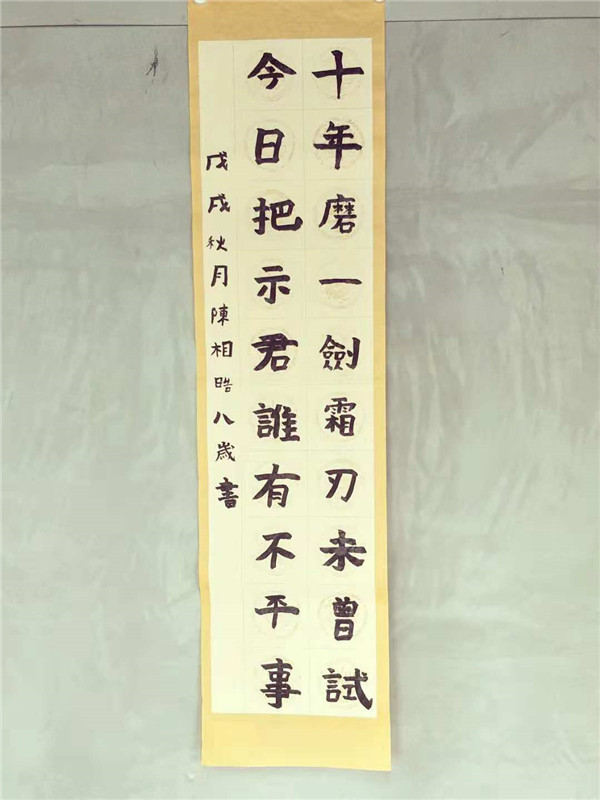 十年磨一劍霜刃未曾試
今日把示君誰有不平事
戊戌秋月陳相晧八歲書